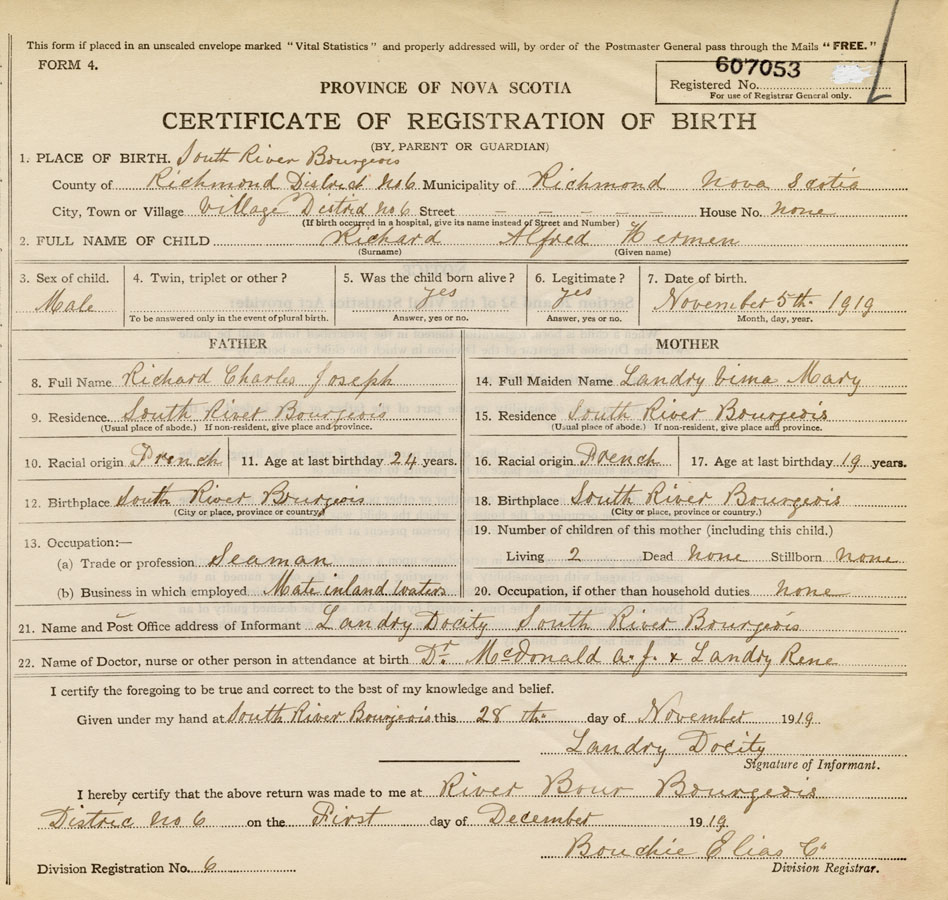 This form if placed in an unsealed envelope marked "Vital Statistics" and properly addressed will, by order of the Postmaster General pass through the Mails "FREE."
FORM 4.
607053
Registered No.
For use of Registrar General only.
PROVINCE OF NOVA SCOTIA
CERTIFICATE OF REGISTRATION OF BIRTH
(BY, PARENT OR GUARDIAN)
1. PLACE OF BIRTH. South River Bourgeois
County of Richmond District No 6 Municipality of Richmond Nova Scotia
City, Town or Village Village District No 6 Street — — — — — House No. none
(If birth occurred in a hospital, give its name instead of Street and Number)
2. FULL NAME OF CHILD Richard Alfred Hermen
(Surname) (Given name)
3. Sex of child. 4. Twin, triplet or other? 5. Was the child born alive? 6. Legitimate? 7. Date of birth.
Male yes yes November 5th 1919
To be answered only in the event of plural birth. Answer, yes or no. Answer, yes or no. Month, day, year.
FATHER MOTHER
8. Full Name Richard Charles Joseph
9. Residence. South River Bourgeois
(Usual place of abode.) If non-resident, give place and province.
10. Racial origin French 11. Age at last birthday 24 years.
12. Birthplace South River Bourgeois
(City or place, province or country)
13. Occupation:—
(a) Trade or profession Seaman
(b) Business in which employed Mate inland waters
14. Full Maiden Name Landry Mary
15. Residence South River Bourgeois
(Usual place of abode.) If non-resident, give place and province.
16. Racial origin French 17. Age at last birthday 19 years.
18. Birthplace South River Bourgeois
(City or place, province or country.)
19. Number of children of this mother (including this child.)
Living 2 Dead none Stillborn none
20. Occupation, if other than household duties none
21. Name and Post Office address of Informant Landry Docity South River Bourgeois
22. Name of Doctor, nurse or other person in attendance at birth Dr. McDonald a. j. & Landry Rene
I certify the foregoing to be true and correct to the best of my knowledge and belief.
Given under my hand at South River Bourgeois this 28 th day of November 1919.
Landry Docity
Signature of Informant.
I hereby certify that the above return was made to me at River Bour Bourgeois
Distric No 6 on the First day of December 1919.
Bouchie Elias C.
Division Registrar.
Division Registration No. 6